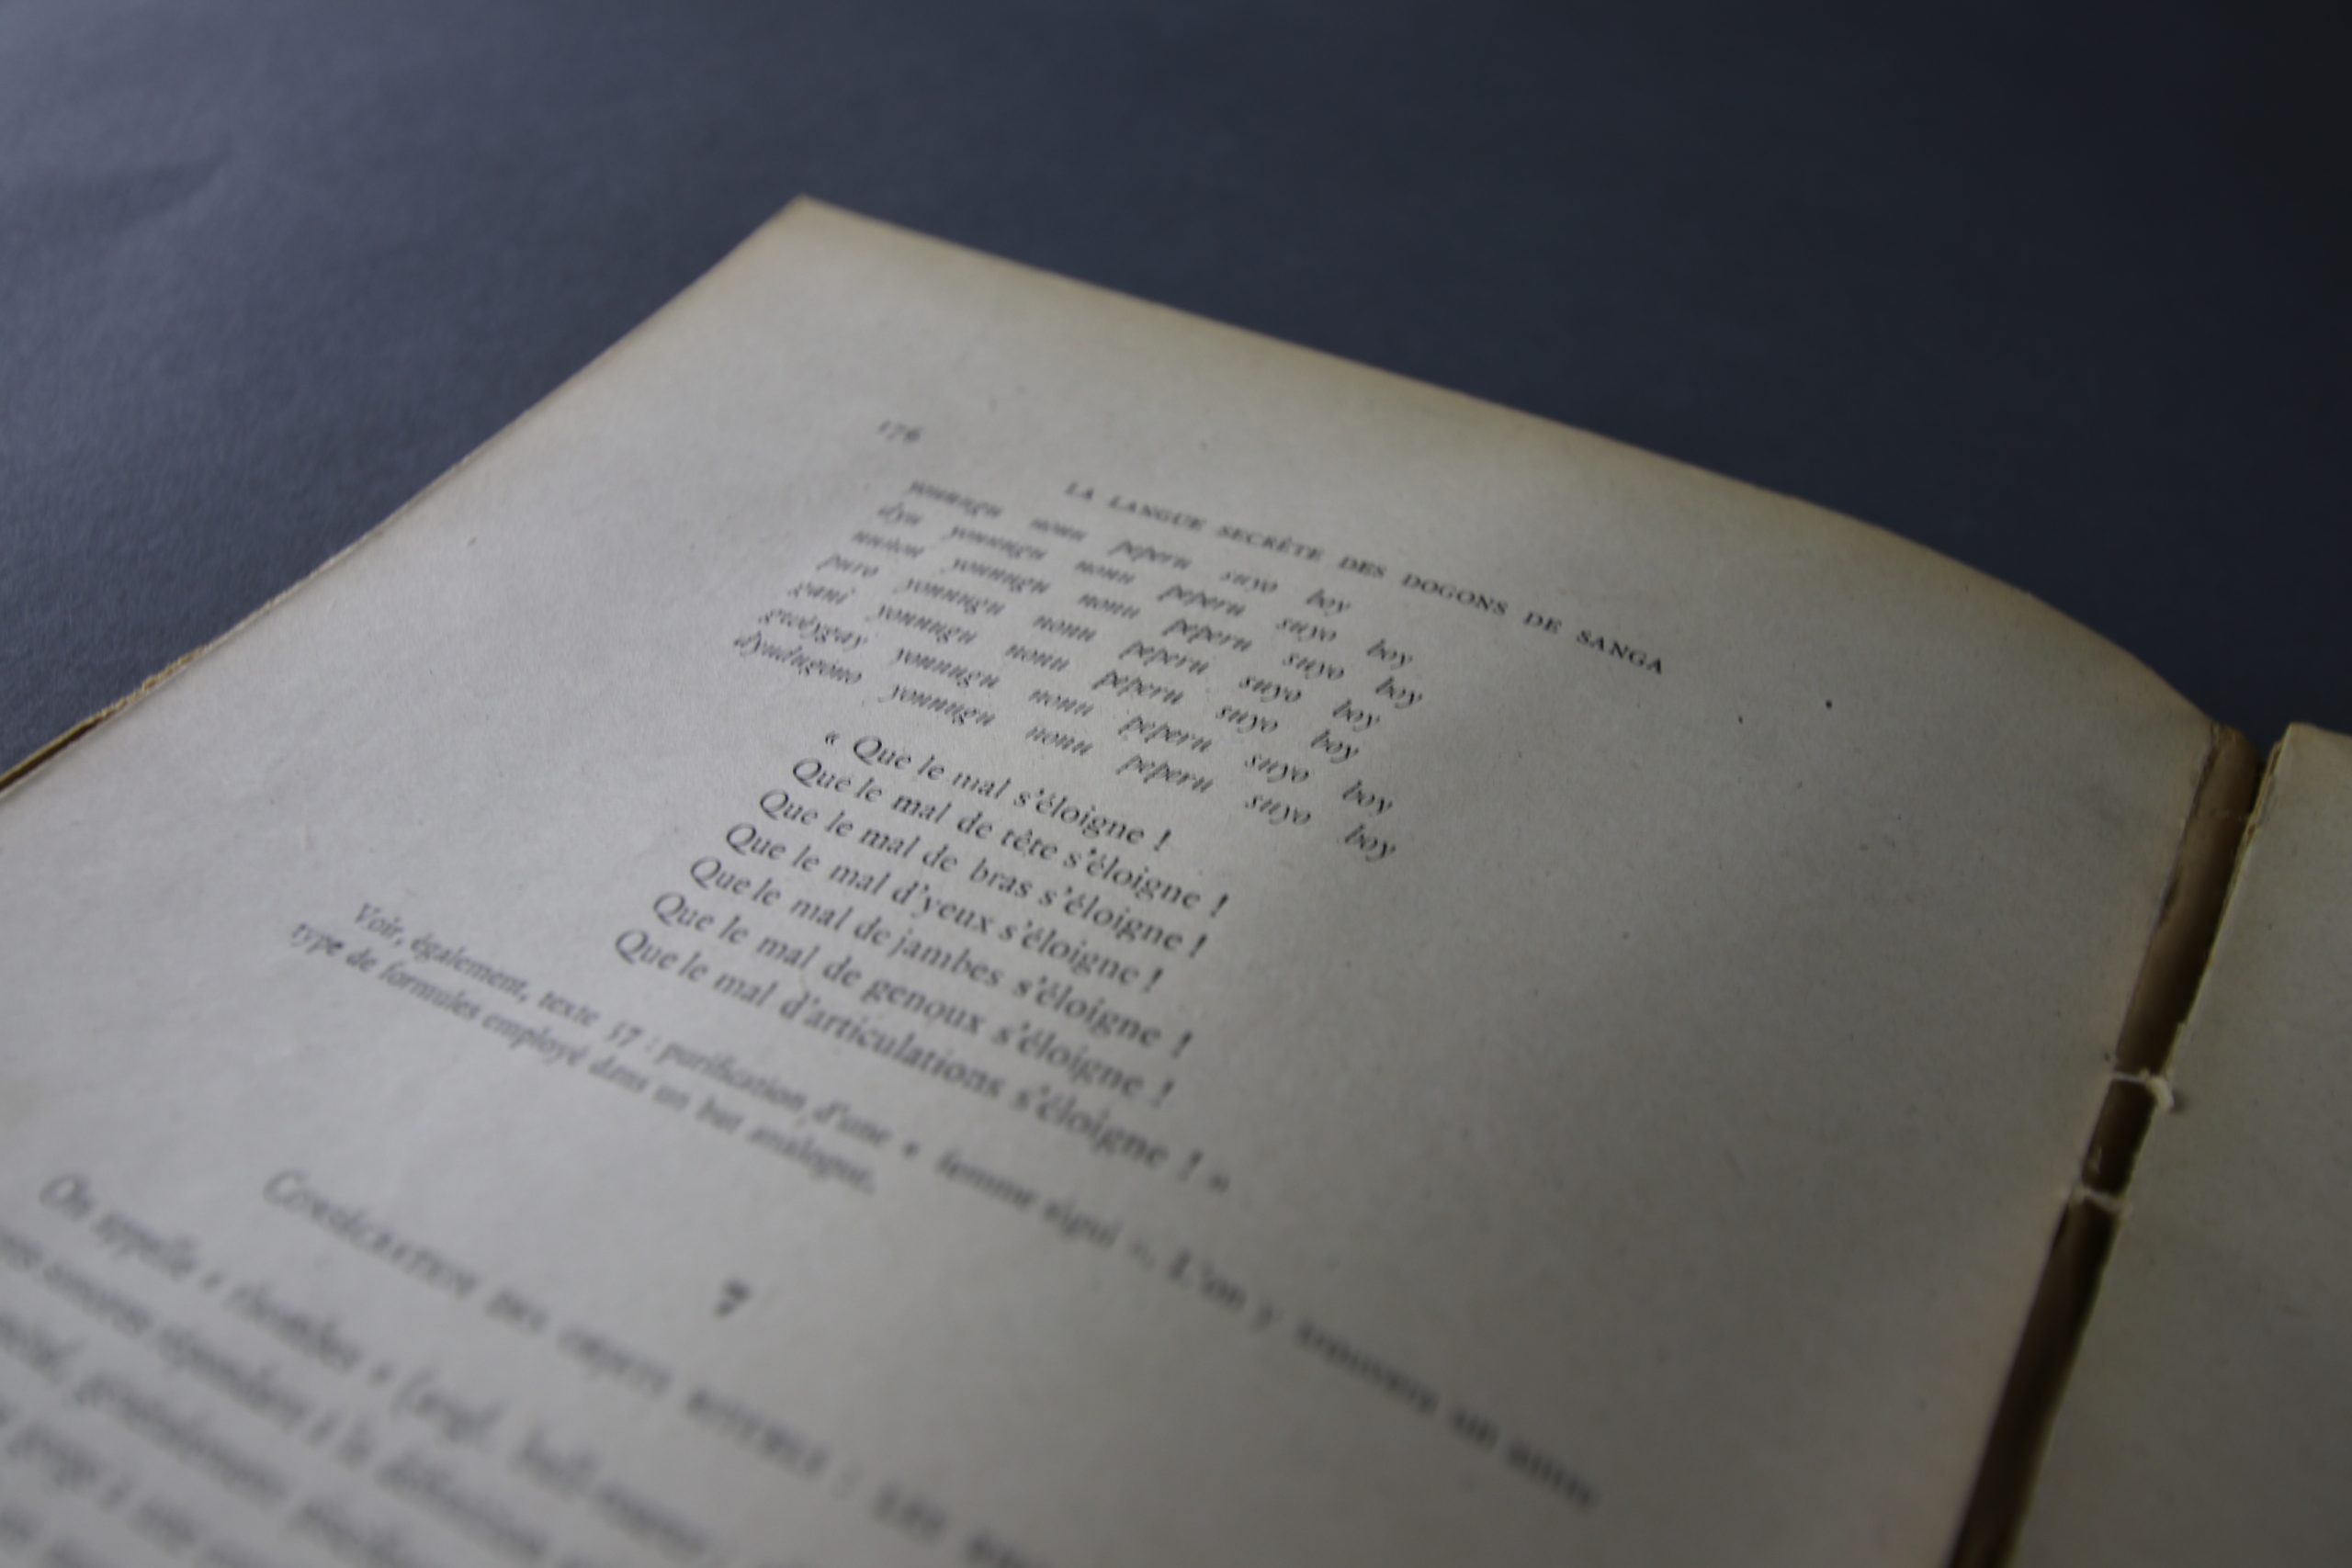 176
LA LANGUE SECRÈTE DES DOGONS DE SANGA
younugu nonu peperu suyo boy
dyu younugu nonu peperu suyo boy
younugu nonu peperu suyo boy
puro younugu nonu peperu suyo boy
gani younugu nonu peperu suyo boy
younugu nonu peperu suyo boy
dyudugono younugu nonu peperu suyo boy
« Que le mal s'éloigne !
Que le mal de tête s'éloigne !
Que le mal de bras s'éloigne !
Que le mal d'yeux s'éloigne !
Que le mal de jambes s'éloigne !
Que le mal de genoux s'éloigne !
Que le mal d'articulations s'éloigne ! »
Voir, également, texte 57 : purification d'une « femme sigui ». L'on y trouvera un autre
type de formules employé dans un but analogue.
7
CONSÉCRATION DES OBJETS RITUELS : LES
On appelle « rhombes » (angl. bull-roarer,